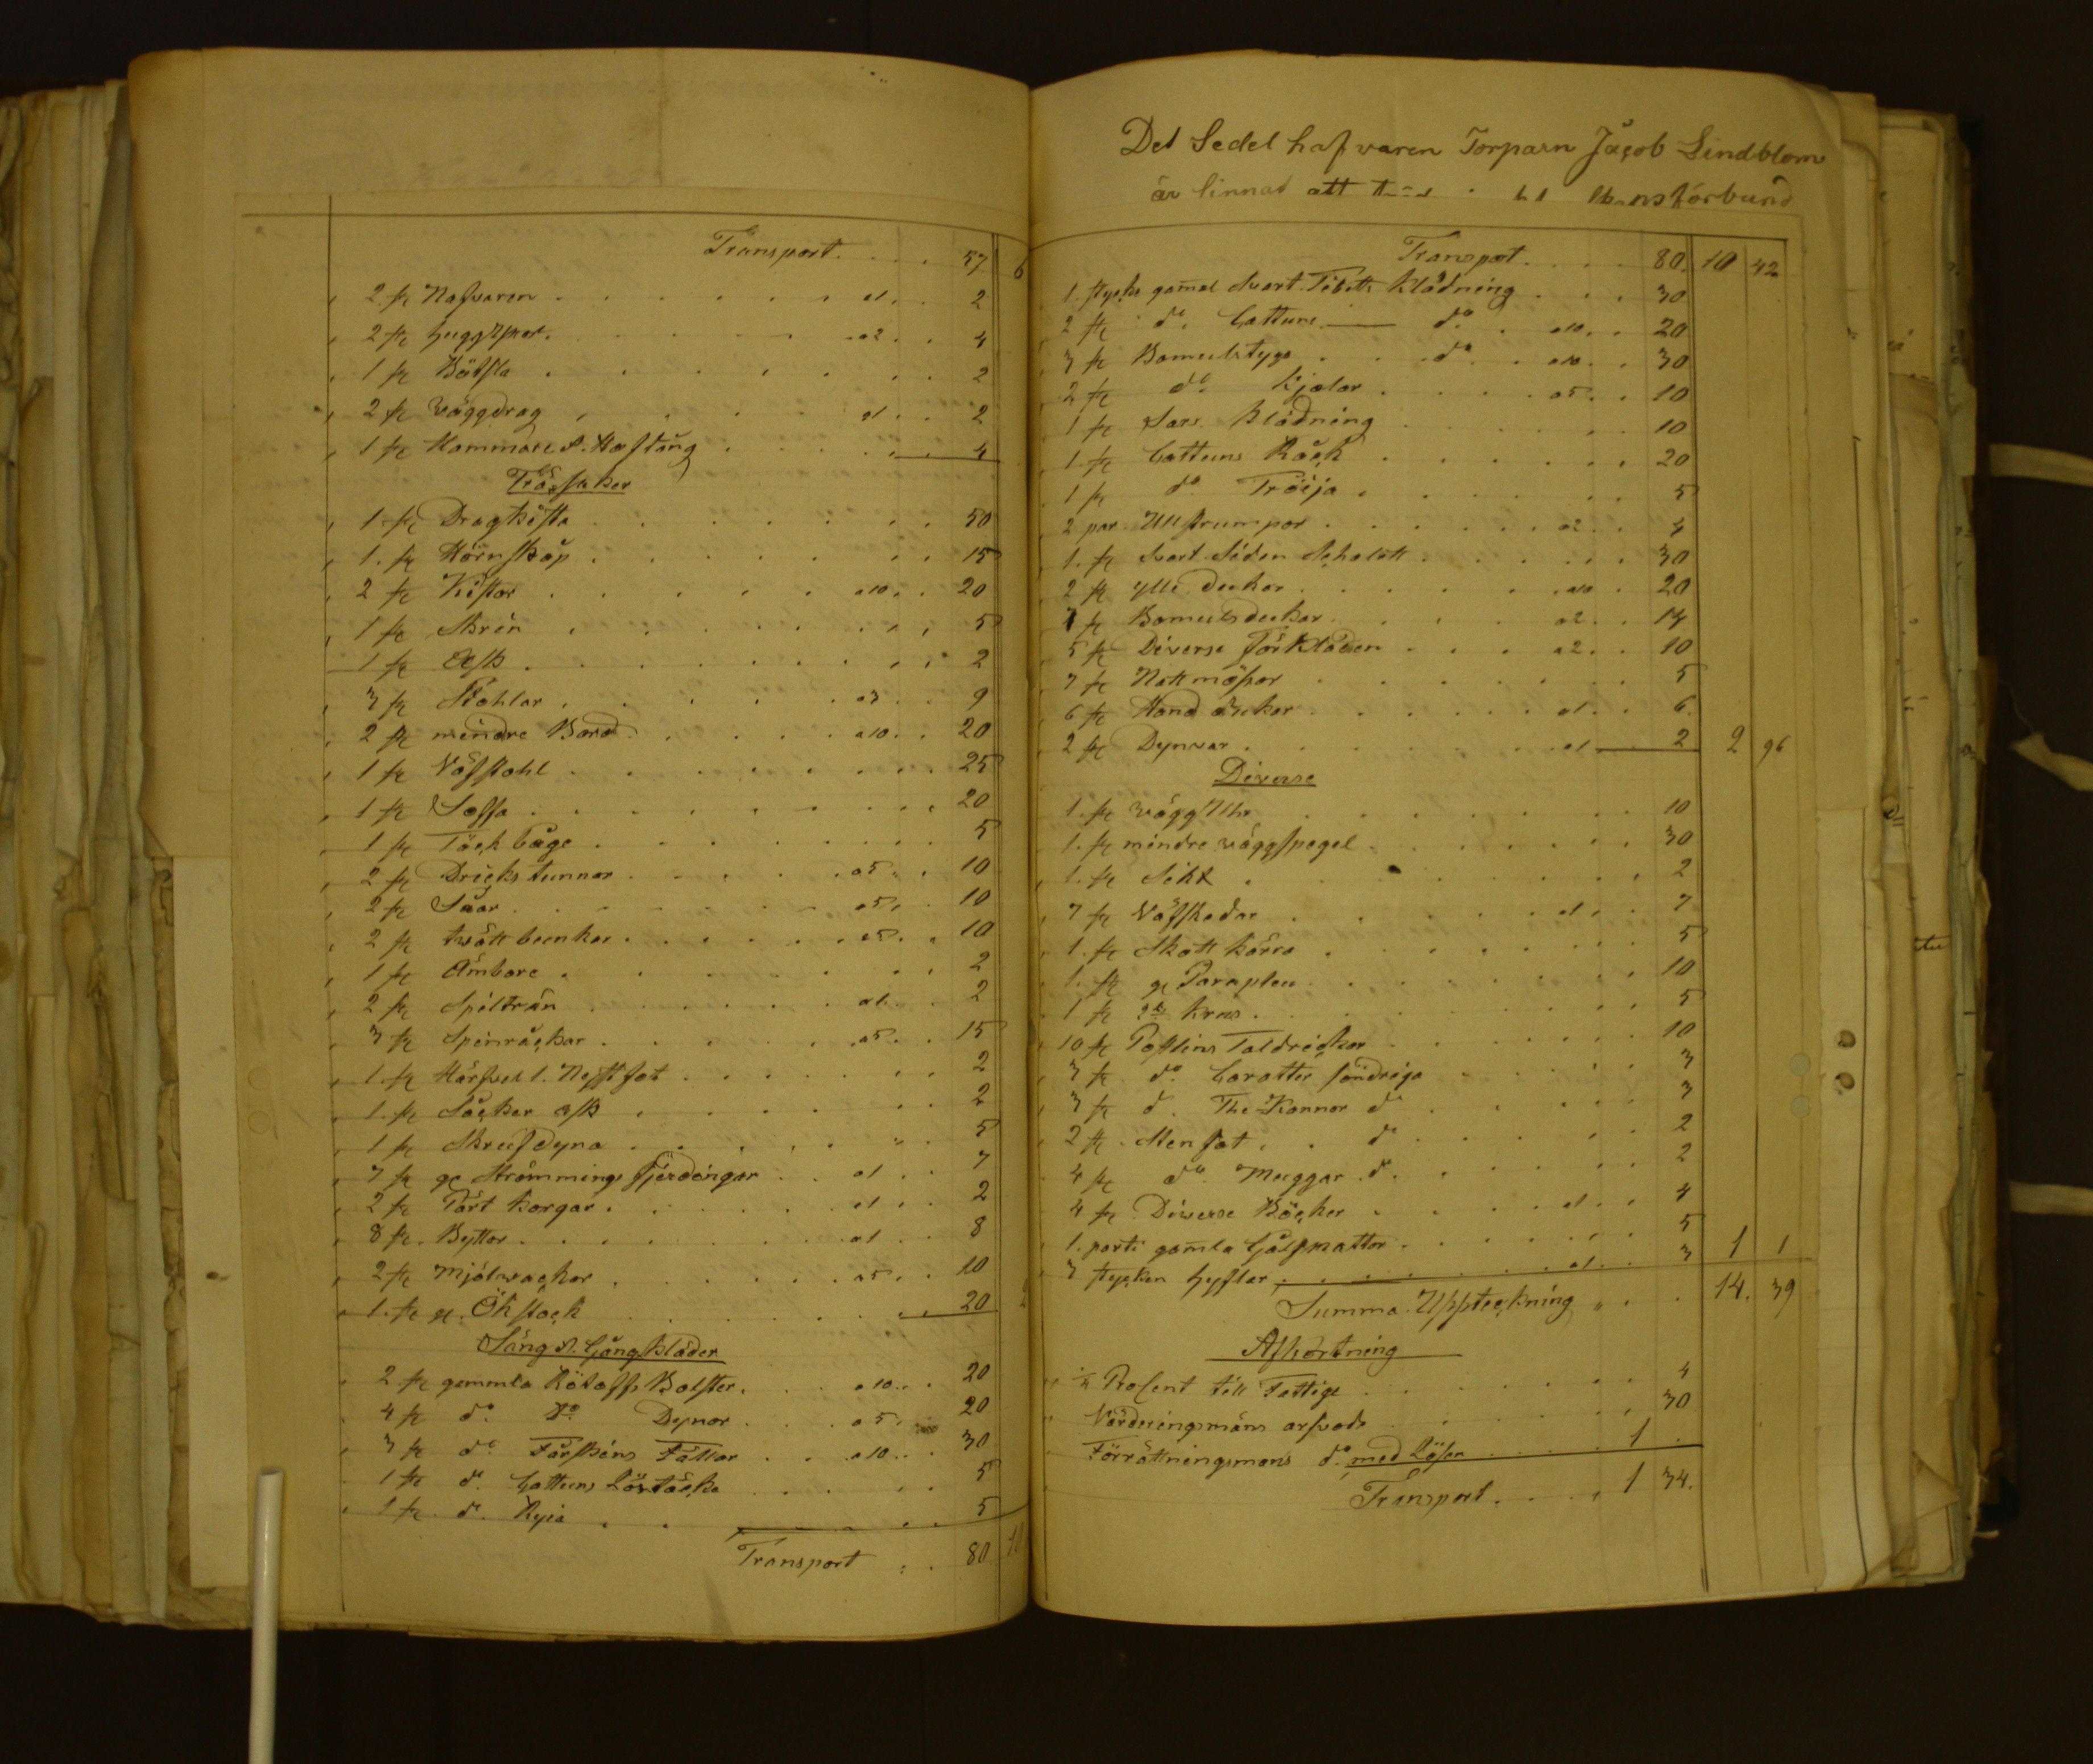 Transport. . . . . 57 6
2 st Nafvaren . . . a1 . . 2
2 st huggspor . . . a2 . . 4
1 st Bötsla . . . 2
2 st väggdrag . . . a1 . . 2
1 st Hammare o. Hoftång . . . 4
Träsaker
1 st Dragkista . . . 50
1. st Hörnskåp . . . 15
2 st Kistor . . . a10 . . 20
1 st Skrin . . . 5
1 st Ask . . . 2
3 st Stohlar . . . a3 . . 9
2 st mindre Bord . . . a10 . . 20
1 st Väfstohl . . . 25
1 st Soffa . . . 20
1 st Täck båge . . . 5
2 st Dricks tunnor . . . a5 . . 10
2 st Såar . . . a5 . . 10
2 st twätt bunkar . . . a5 . . 10
1 st Ämbare . . . 2
2 st Spiltrån . . . a1 . . 2
3 st Spinråckar . . . a5 . . 15
1. st Härfvel 1. Nystfot . . . 2
1. st Såcker ask . . . 2
1 st Skrufdyna . . . 5
7 st gl Strömmings fjerdingar . . a1 . . 7
2 st Pärt korgar . . . a1 . . 2
8 st. Byttor . . . a1 . . 8
2 st Mjölsäckar . . . a5 . . 10
1. st gl. Ökstock . . . 20 2
Säng o. Gångkläder
2 st gammla Bolster . . . a10 . . 20
4 st do. do Dynor . . . a5 . . 20
3 st do. Fårskins Fällar . . . a10 . . 30
1 st do. Cattuns Täcke . . . 5
1 st do. Ryia . . . 5
Transport . . 80 10
Det Sedelhafvaren Torparn Jacob Lindblom
är linnat att
Transport . . . . 80. 10 42
1. stycke gamel svart Tibets Klädning . . . 30
2 st do. Cattuns do. . a10 . . 20
3 st Bomulstygs . . do. . a10 . . 30
2 st do. Kjolar . . . a5 . . 10
1 st Sars Klädning . . . 10
1 st Cattuns Råck . . . 20
1 st do Tröija . . . 5
2 par Ullstrumpor . . . a2 . . 4
1. st Svart Siden Schalett . . . 30
2 st ylle Dukar . . . a10 . 20
7 st Bomulsdukar . . . a2 . . 14
5 st Diverse Förkläden . . . a2 . . 10
7 st Nattmössor . . . 5
6 st Handdukar . . . a1 . . 6
2 st Dynvar . . . a1 . . 2 2 96
Diverse
1. st vägg Uhr . . . 10
1. st mindre väggspegel . . . 30
1. st Sikt . . . 2
7 st Väfskedar . . . a1 . . 7
1. st Skottkärra . . . 5
1. st gl Paraplen . . . 10
1 st krus . . . 5
10 st Poslins Taldrickar . . . 10
3 st do. Caratter söndriga . . . 3
3 st d. The-Kannor do . . . 3
2 st Stenfat . . do . . . 2
4 st do. Muggar do. . . . 2
4 st Diverse Böcker . . . a1 . . 4
1. parti gamla Gålfmattor . . . 5 1 1
3 stycken hyflar . . . a1 . . 3
Summa Uppteckning . . . 14. 39
Afkortning
Procent till Fattige . . . 4
Värderingsmäns arfvode . . . 30
Förrättningsmans do. med Lösen . . . 1 .
Transport . . . . 1 34.